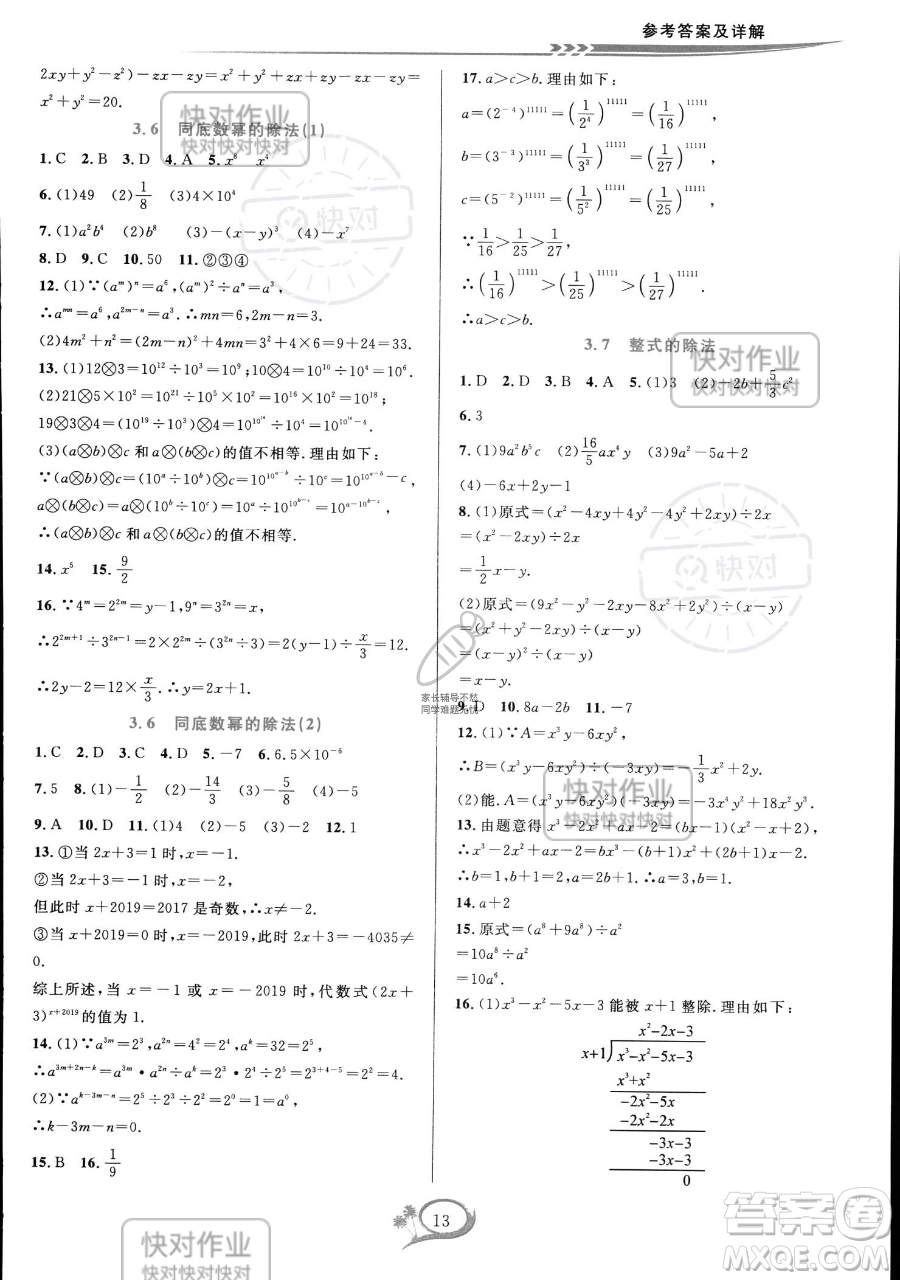 参考答案及详解
2xy+y²-z²)-zx-zy=x²+y²+zx+zy-zx-zy=
x²+y²=20.
3.6 同底数幂的除法(1)
1.C 2.B 3.D 4.A 5.x⁸ x⁴
6.(1)49 (2)1/8 (3)4×10⁴
7.(1)a²b⁴ (2)b⁸ (3)-(x-y)³ (4)-x⁷
8.D 9.C 10.50 11.②③④
12.(1)∵(aᵐ)ⁿ=a⁶,(aᵐ)²÷aⁿ=a³,
∴aᵐⁿ=a⁶,a²ᵐ⁻ⁿ=a³.∴mn=6,2m-n=3.
(2)4m²+n²=(2m-n)²+4mn=3²+4×6=9+24=33.
13.(1)12⊗3=10¹²÷10³=10⁹;10⊗4=10¹⁰÷10⁴=10⁶.
(2)21⊗5×10²=(10²¹÷10⁵)×10²=10¹⁶×10²=10¹⁸;
19⊗3⊗4=(10¹⁹÷10³)⊗4=10^(10^16)÷10⁴=10^(10^16-4).
(3)(a⊗b)⊗c和a⊗(b⊗c)的值不相等.理由如下:
∵(a⊗b)⊗c=(10ᵃ÷10ᵇ)⊗c=10^(10^(a-b))÷10ᶜ=10^(10^(a-b)-c),
a⊗(b⊗c)=a⊗(10ᵇ÷10ᶜ)=10ᵃ÷10^(10^(b-c))=10^(a-10^(b-c)),
∴(a⊗b)⊗c和a⊗(b⊗c)的值不相等.
14.x⁵ 15.9/2
16.∵4ᵐ=2²ᵐ=y-1,9ⁿ=3²ⁿ=x,
∴2²ᵐ⁺¹÷3²ⁿ⁻¹=2²ᵐ×2÷(3²ⁿ÷3)=2(y-1)÷x/3=12.
∴2y-2=12×x/3.∴y=2x+1.
3.6 同底数幂的除法(2)
1.C 2.D 3.C 4.D 5.-7 6.6.5×10⁻⁶
7.5 8.(1)-1/2 (2)-14/3 (3)-5/8 (4)-5
9.A 10.D 11.(1)4 (2)-5 (3)8 12.1
13.①当2x+3=1时,x=-1.
②当2x+3=-1时,x=-2,
但此时x+2019=2017是奇数,∴x≠-2.
③当x+2019=0时,x=-2019,此时2x+3=-4035≠
0.
综上所述,当x=-1或x=-2019时,代数式(2x+
3)ˣ⁺²⁰¹⁹的值为1.
14.(1)∵a³ᵐ=2³,a²ⁿ=2⁴,aᵏ=2⁵,
∴a³ᵐ⁺²ⁿ⁻ᵏ=a³ᵐ•a²ⁿ÷aᵏ=2³•2⁴÷2⁵=2³⁺⁴⁻⁵=2²=4.
(2)∵aᵏ⁻³ᵐ⁻ⁿ=2⁵÷2³÷2²=2⁰=1=a⁰,
∴k-3m-n=0.
15.B 16.1/9
17.a>c>b.理由如下:
a=(2⁻⁴)¹¹¹¹¹=(1/2⁴)¹¹¹¹¹=(1/16)¹¹¹¹¹,
b=(3⁻³)¹¹¹¹¹=(1/3³)¹¹¹¹¹=(1/27)¹¹¹¹¹,
c=(5⁻²)¹¹¹¹¹=(1/5²)¹¹¹¹¹=(1/25)¹¹¹¹¹,
∵1/16>1/25>1/27,
∴(1/16)¹¹¹¹¹>(1/25)¹¹¹¹¹>(1/27)¹¹¹¹¹,
∴a>c>b.
3.7 整式的除法
1.D 2.D 3.B 4.A 5.(1)3 (2)-2b+5/3c²
6.3
7.(1)9a²b⁵c (2)16/5ax⁴y (3)9a²-5a+2
(4)-6x+2y-1
8.(1)原式=(x²-4xy+4y²-4y²+2xy)÷2x
=(x²-2xy)÷2x
=1/2x-y.
(2)原式=(9x²-y²-2xy-8x²+2y²)÷(x-y)
=(x²+y²-2xy)÷(x-y)
=(x-y)²÷(x-y)
=x-y.
9.D 10.8a-2b 11.-7
12.(1)∵A=x³y-6xy²,
∴B=(x³y-6xy²)÷(-3xy)=-1/3x²+2y.
(2)能.A=(x³y-6xy²)(-3xy)=-3x⁴y²+18x²y³.
13.由题意得x³-2x²+ax-2=(bx-1)(x²-x+2),
∴x³-2x²+ax-2=bx³-(b+1)x²+(2b+1)x-2.
∴b=1,b+1=2,a=2b+1.∴a=3,b=1.
14.a+2
15.原式=(a⁸+9a⁸)÷a²
=10a⁸÷a²
=10a⁶.
16.(1)x³-x²-5x-3能被x+1整除.理由如下:
x²-2x-3
x+1 x³-x²-5x-3
x³+x²
-2x²-5x
-2x²-2x
-3x-3
-3x-3
0
家长辅导不愁
同学难题无忧
13
快对作业
快对快对快对
快对
答案圈
MXQE.COM